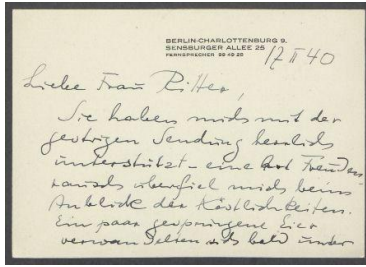 BERLIN-CHARLOTTENBURG 9.
SENSBURGER ALLEE 26
FERNSPRECHER
17 II 40
Liebe Frau Ritter,
Sie haben mich mit der
gestrigen Sendung herrlich
unterstützt - eine Art Freuden
rausch überfiel mich beim
Anblick der Köstlichkeiten.
Ein paar gesprungene Eier
verwandelten sich bald unter